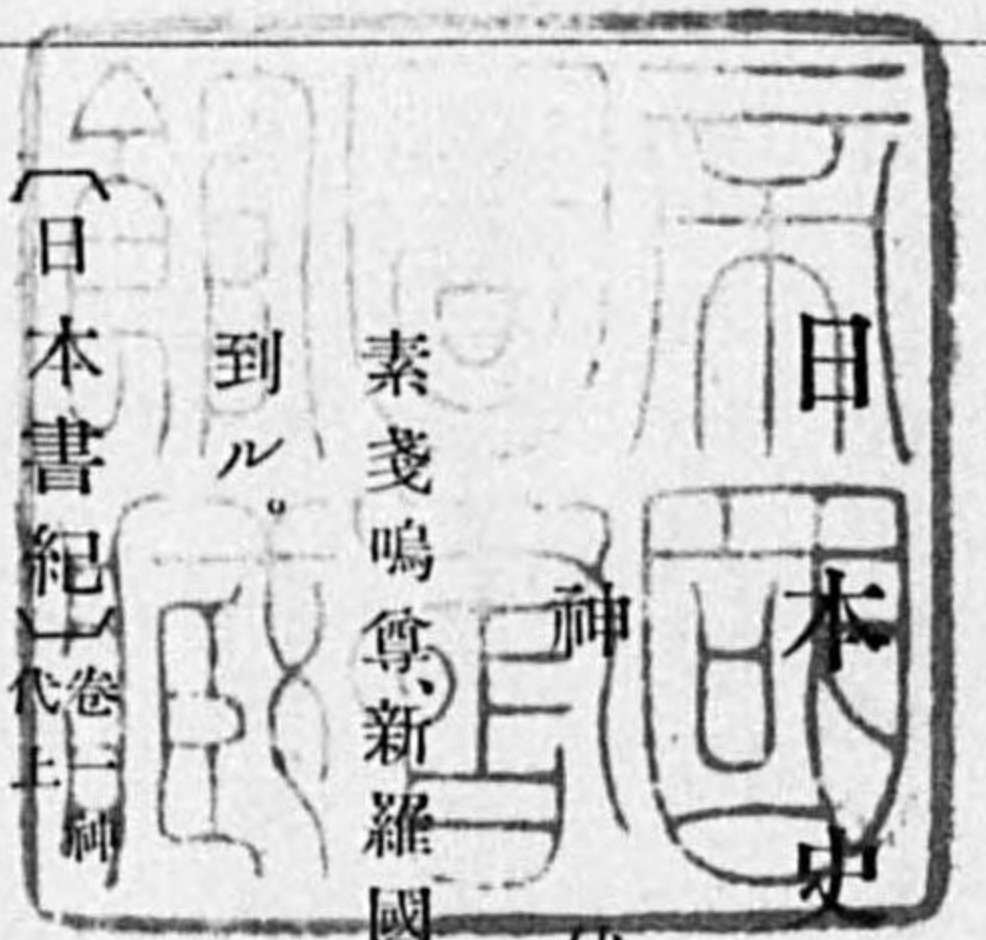 日本史
神
素戔嗚尊、新羅國
到ル。
〔日本書紀〕卷一神代上